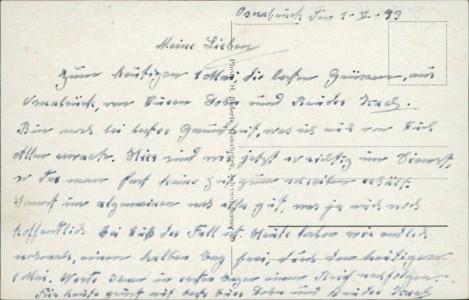 Osnabrück, den 1. V. 43
Meine Lieben
Zum heutigen 1 Mai, die besten Grüssen, aus
Osnabrück, von Eurem Sohn und Bruder Karl.
Bin noch bei bester Gesundheit, was ich auch von Euch
Allen erwarte. Hier sind wir jetzt so richtig im Dienst,
so das man fast keine Zeit zum schreiben erhält.
Sonst im algemeinen noch alles gut, was ja auch noch
hoffentlich bei Euch der Fall ist. Heute haben wir endlich
einen halben Tag frei, durch den heutigen
1 Mai. Werde dann in ersten Tagen einen Brief nachfolgen.
Für heute grüst auf das Euer Sohn und Bruder Karl